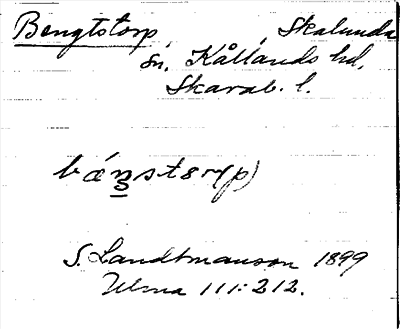 Bengtstorp, Skalunda
sn, Kållands hd,
Skarab. l.
bæŋstor(p)
S. Landtmanson 1899
Ulma 111:212.